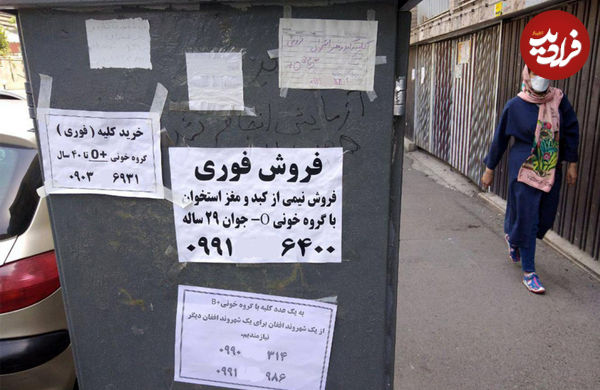 خرید کلیه ( فوری )
گروه خونی +O تا ۴۰ سال
۰۹۰۳ ۶۹۳۱
فروش فوری
فروش نیمی از کبد و مغز استخوان
با گروه خونی O- جوان ۲۹ ساله
۰۹۹۱ ۶۴۰۰
به یک عدد کلیه با گروه خونی B+
از یک شهروند افغان برای یک شهروند افغان دیگر
نیازمندیم.
۰۹۹۰ ۳۱۴
۰۹۹۱ ۹۸۶
فرادید